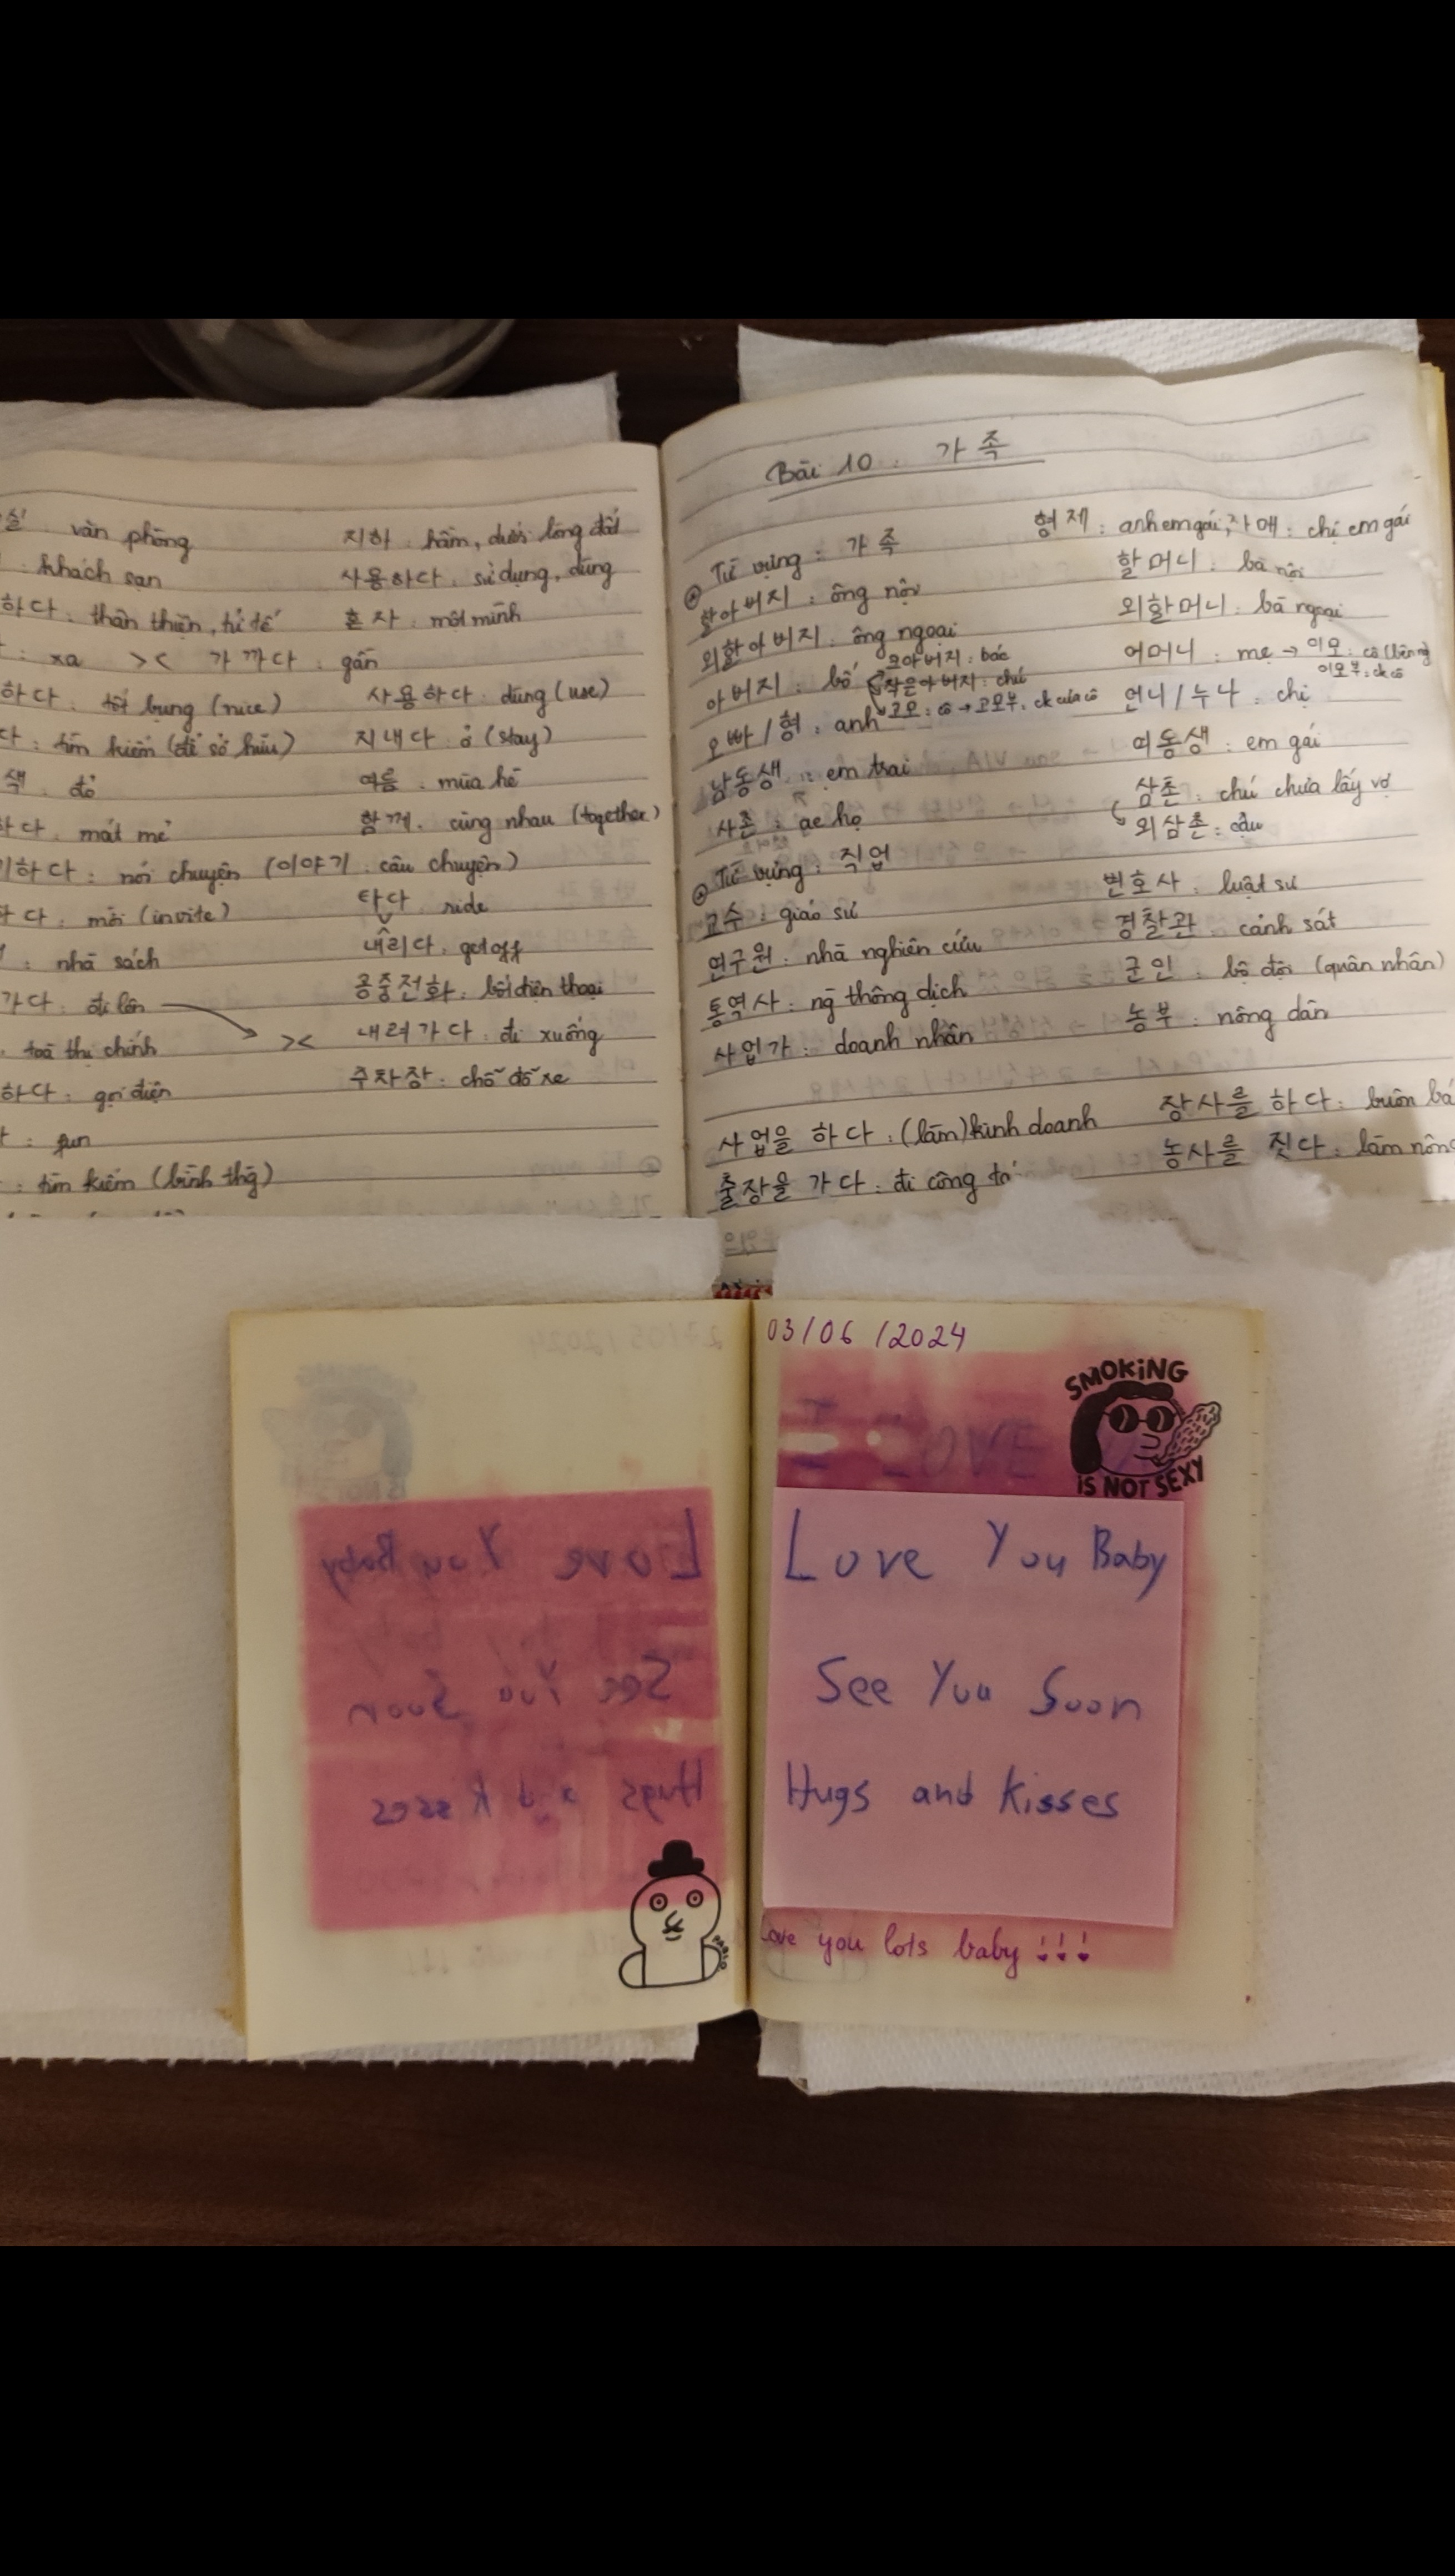 văn phòng
khách sạn
하다: thân thiện, tử tế
: xa >< 가깝다: gần
하다: tốt bụng (nice)
다: tìm kiếm (để sở hữu)
색: đỏ
하다. mát mẻ
기하다: nói chuyện (이야기: câu chuyện)
다: mời (invite)
: nhà sách
가다: đi lên
toà thị chính
하다: gọi điện
: fun
: tìm kiếm (bình thg)
지하: hầm, dưới lòng đất
사용하다: sử dụng, dùng
혼자: một mình
사용하다: dùng (use)
지내다: ở (stay)
여름: mùa hè
함께. cùng nhau (together)
타다. ride
내리다. get off
공중전화: bốt điện thoại
>< 내려가다: đi xuống
주차장: chỗ đỗ xe
Bài 10: 가족
Từ vựng: 가족
형제: anh em gái, 자매: chị em gái
할아버지: ông nội
할머니: bà nội
외할아버지: ông ngoại
외할머니: bà ngoại
아버지: bố
큰아버지: bác
작은아버지: chú
고모: cô → 고모부: ck của cô
어머니: mẹ → 이모: cô (bên ng
이모부: ck cô
오빠/형: anh
언니/누나: chị
남동생: em trai
여동생: em gái
사촌: ae họ
삼촌: chú chưa lấy vợ
외삼촌: cậu
Từ vựng: 직업
교수: giáo sư
변호사: luật sư
연구원: nhà nghiên cứu
경찰관: cảnh sát
통역사: ng thông dịch
군인: bộ đội (quân nhân)
사업가: doanh nhân
농부: nông dân
사업을 하다: (làm) kinh doanh
장사를 하다: buôn bá
출장을 가다: đi công tá
농사를 짓다: làm nông
03/06/2024
SMOKING
IS NOT SEXY
I LOVE
Love You Baby
See You Soon
Hugs and Kisses
Love you lots baby !!!
PABLO